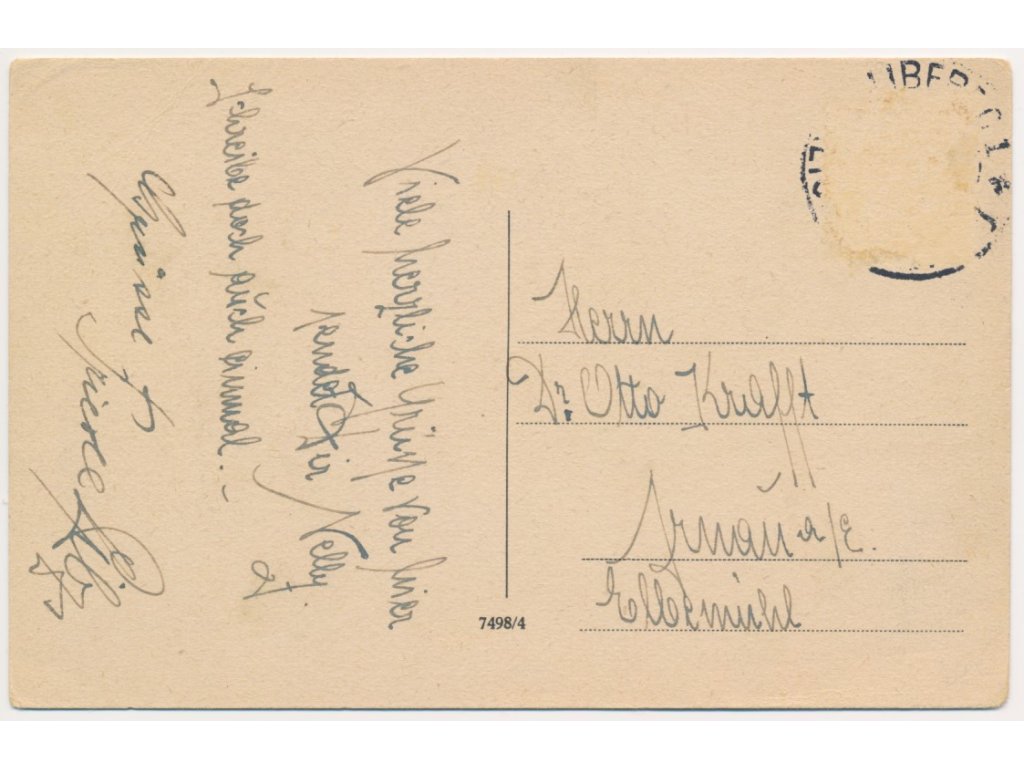 Viele herzliche Grüße von hier
sendet Dir
Nelly
Schreibe doch auch einmal.-
Grüsse
LIBEREC 1
Herrn
Dr. Otto Krafft
Arnau a/E.
Elbemühl
7498/4